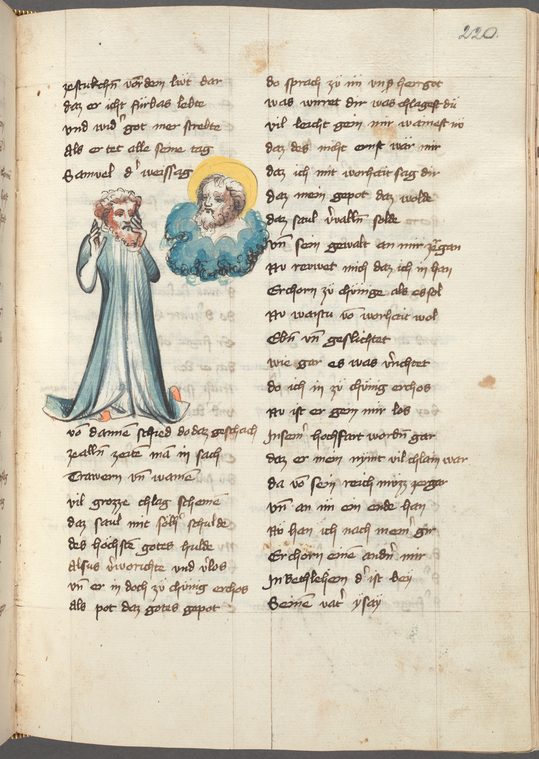 220.
zestukchn̄ vor dem lüt dar
daz er icht fürbas lebte
vnd wid' got mer strebte
Als er tet alle seine tag
Samuel d' weissag
võ dannē schied do daz geschach
zealln̄ zeitē mā in sach
Trawern vn̄ wainē
vil grozze chlag scheinē
daz saul mit sölh' schulde
des höchstē gotes hulde
Alsus v'worichte vnd v'los
vn̄ er in doch zü chönig erchos
Als pot daz gotes gepot
do sprach zü im vns' herrgot
was wirret dir was chlagest dü
vil leicht gein mir wainest nv
daz des nicht ernst war mir
daz ich mit worhait sag dir
daz mein gepot daz wolde
daz saul v'valln̄ solde
vn̄ sein gewalt an mir zegan
Nv rewet mich daz ich in han
Erchorn zü chönige als es sol
Nv waistu võ worhait wol
Ebn̄ vn̄ geslichtet
wie gar es was v'richtet
do ich in zü chönig erchos
Nv ist er gein mir los
In sein' hochfart wordn̄ gar
daz er mein nymt vil chlain war
da võ sein reich müzz zegar
vn̄ an im ein ende han
Nv han ich nach mein' gir
Erchorn einē andn̄ mir
In Bethlehem d' ist bey
Seinē vat' ysay